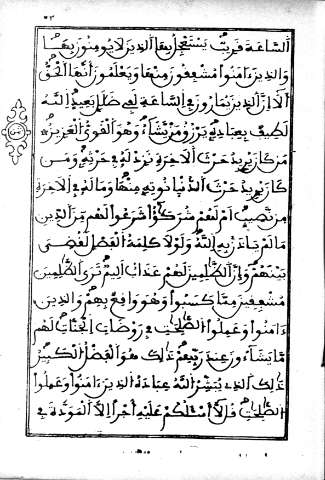 السَّاعَةَ قَرِيبٌ يَسْتَعْجِلُ بِهَا الذِينَ لَا يُومِنُونَ بِهَا
وَالذِينَ ءَامَنُوا مُشْفِقُونَ مِنْهَا وَيَعْلَمُونَ أَنَّهَا الْحَقُّ
أَلَا إِنَّ الذِينَ يُمَارُونَ فِي السَّاعَةِ لَفِي ضَلَالٍ بَعِيدٍ اللَّهُ
لَطِيفٌ بِعِبَادِهِ يَرْزُقُ مَنْ يَشَاءُ وَهُوَ الْقَوِيُّ الْعَزِيزُ
مَن كَانَ يُرِيدُ حَرْثَ الْآخِرَةِ نَزِدْ لَهُ فِي حَرْثِهِ وَمَن
كَانَ يُرِيدُ حَرْثَ الدُّنْيَا نُوتِهِ مِنْهَا وَمَا لَهُ فِي الْآخِرَةِ
مِن نَّصِيبٍ أَمْ لَهُمْ شُرَكَٰؤُا شَرَعُوا لَهُم مِّنَ الدِّينِ
مَا لَمْ يَاذَن بِهِ اللَّهُ وَلَوْلَا كَلِمَةُ الْفَصْلِ لَقُضِيَ
بَيْنَهُمْ وَإِنَّ الظَّٰلِمِينَ لَهُمْ عَذَابٌ أَلِيمٌ تَرَى الظَّٰلِمِينَ
مُشْفِقِينَ مِمَّا كَسَبُوا وَهُوَ وَاقِعٌ بِهِمْ وَالذِينَ
ءَامَنُوا وَعَمِلُوا الصَّٰلِحَٰتِ فِي رَوْضَاتِ الْجَنَّاتِ لَهُم
مَّا يَشَاءُونَ عِندَ رَبِّهِمْ ذَٰلِكَ هُوَ الْفَضْلُ الْكَبِيرُ
ذَٰلِكَ الذِي يُبَشِّرُ اللَّهُ عِبَادَهُ الذِينَ ءَامَنُوا وَعَمِلُوا
الصَّٰلِحَٰتِ قُل لَّا أَسْـَٔلُكُمْ عَلَيْهِ أَجْرًا إِلَّا الْمَوَدَّةَ فِي